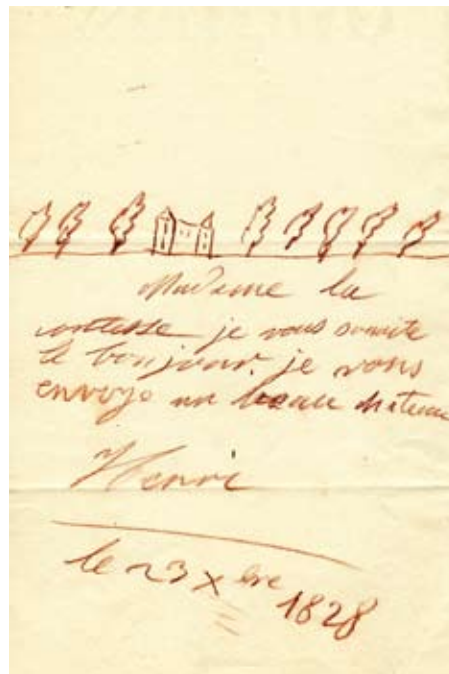 Madame la
contesse je vous souaite
le bonjour. je vous
envoye un beau chateau
Henri
le 23 Xbre 1828